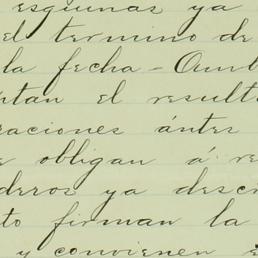 esquinas ya
el termino de
la fecha - Amb
ntan el result
raciones ántes
e obligan á re
deros ya descr
to firman la
y convienen e